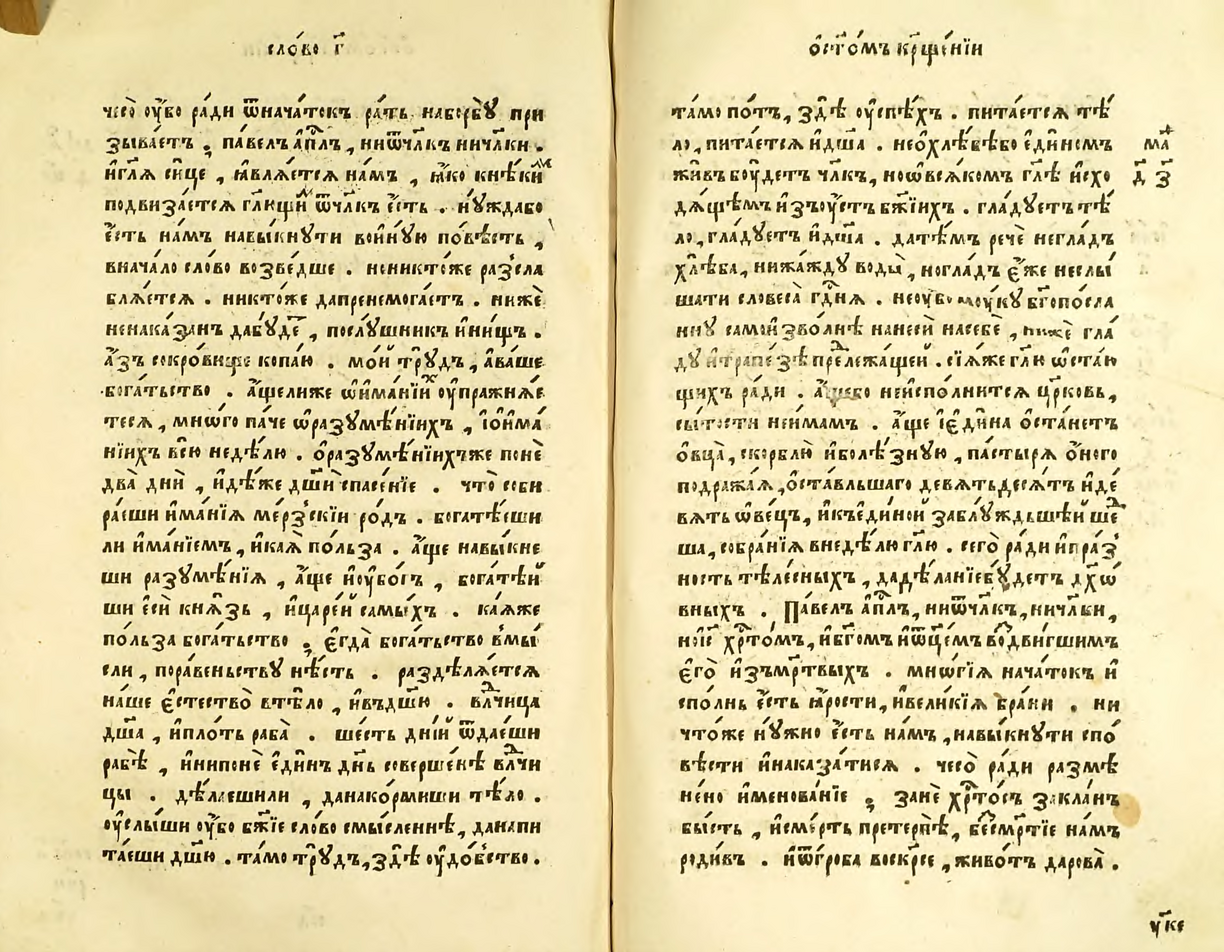 сло́во г҃
чесо̀ оу҆́бо ра́ди ѿнача́токъ ра́ть наборбꙋ̀ при
зыва́етъ ; па́велъ а҆п҃лъ , ниѿчл҃къ ничл҃къ .
и҆гл҃ѧ си́це , ꙗ҆влѧ́етсѧ на́мъ , ꙗ҆́ко кнѣ́кимъ
подвиза́етсѧ гл҃ющимъ ѿчл҃къ є҆́сть . нꙋ́ждабо
є҆́сть на́мъ навы́кнꙋти вои́нꙋю по́вѣсть ,
внача́ло сло́во возве́дше . нониктоже разсла
блѧ́етсѧ . никто́же дапренемога́етъ . нижѐ
ненака́занъ дабꙋ́де , послꙋ́шникъ и҆ни́щъ .
а҆́зъ сокро́вище копа́ю . мо́й трꙋ́дъ , а҆ва́ше
бога́тьство . а҆́щелиже ѡ҆има́нїихъ оу҆пражнѧ́е
тесѧ , мно́го па́че ѡ҆разꙋмѣ́нїихъ , і҆ѻ҆има́
нїихъ всю̀ недѣ́лю . ѻ҆разꙋмѣ́нїихъже понѐ
два̀ днѝ , и҆дѣ́же дш҃и спасе́нїе . что̀ соби
ра́еши и҆мѣ́нїѧ ме́рзскїи ро́дъ . богатѣ́еши
ли и҆ма́нїемъ , и҆ка́ѧ по́льза . а҆́ще навы́кне
ши разꙋмѣ́нїѧ , а҆́ще и҆оу҆бо́гъ , богатѣ́й
ши є҆сѝ кнѧ́зь , и҆царе́й самы́хъ . ка́ѧже
по́льза бога́тьство ; є҆гда̀ бога́тьство вмы́
сли , пора́веньствꙋ нѣ́сть . раздѣлѧ́етсѧ
на́ше є҆стество̀ втѣ́ло , и҆въдш҃ю . влⷣчица
дш҃а , и҆пло́ть раба̀ . ше́сть дні́й ѿдае́ши
рабѣ̀ , и҆нипонѐ є҆ди́нъ дн҃ь соверше́нѣ влⷣчи
цы . дѣ́лаешили , данако́рмиши тѣ́ло .
оу҆слы́ши оу҆́бо бж҃їе сло́во смы́сленнѣ , данапи
та́еши дш҃ю . та́мо трꙋ́дъ , здѣ̀ оу҆до́бство .
ѻ҆ст҃о́мъ крⷭ҇ще́нїи
та́мо по́тъ , здѣ̀ оу҆спѣ́хъ . пита́етсѧ тѣ́
ло , пита́етсѧ и҆дш҃а . неѻ҆хлѣ́бѣбо є҆ди́немъ
жи́въ бꙋ́детъ чл҃къ , ноѡ҆всѧ́комъ гл҃ѣ и҆схо
дѧ́щемъ и҆зъоу҆́стъ бж҃їихъ . гла́дꙋетъ тѣ́
ло , гла́дꙋетъ и҆дш҃а . да́тѣмъ речѐ негла́дъ
хлѣ́ба , нижа́ждꙋ воды̀ , ногла́дъ є҆́же неслы́
шати словеса̀ гдⷭ҇нѧ . неоу҆́бо мꙋ́кꙋ бг҃опосла
ннꙋ самои҆зво́лнѣ нанеси́ насебѐ , нижѐ гла
дꙋ́й трапе́зѣ предлежа́щей . сїѧ́же гл҃ю ѡ҆ста́ю
щихъ ра́ди . а҆́щебо неи҆спо́лнитсѧ цр҃ковь ,
сы́тости неи́мамъ . а҆́ще і҆є҆ди́на ѻ҆ста́нетъ
ѻ҆вца̀ , скорблю́ и҆болѣ́зную , па́стырѧ ѻ҆́ного
подража́ѧ , ѻ҆ста́вльшаго де́вѧтьдесѧ́тъ и҆де
вѧть ѡ҆ве́цъ , и҆къє҆ди́ной заблꙋ́ждьшѣй шед
ша , собра́нїѧ внедѣ́лю гл҃ю . сего̀ ра́ди и҆пра́з
ность тѣле́сныхъ , дадѣ́ланїебꙋ́детъ дх҃о́
вныхъ . Па́велъ а҆п҃лъ , ниѿчл҃къ , ничл҃ки ,
ноі҆с҃ хрⷭ҇то́мъ , и҆бг҃омъ и҆ѿц҃емъ воздви́гшимъ
є҆го̀ и҆зъме́ртвыхъ . мно́гїѧ нача́токъ и҆
спо́лнь є҆́сть ꙗ҆́рости , и҆вели́кїѧ бра́ни . ни
что́же нꙋ́жно є҆́сть на́мъ , навы́кнꙋти спо́
вѣсти и҆наказа́тисѧ . чесо̀ ра́ди размѣ
не́но и҆менова́нїе ; занѐ хрⷭ҇то́съ закла́нъ
бы́сть , и҆сме́рть претерпѣ̀ , безсмр҃тїе на́мъ
роди́въ . и҆ѿгро́ба воскре́се , живо́тъ дарова̀ .
мⷴа҃
д҃ з҃